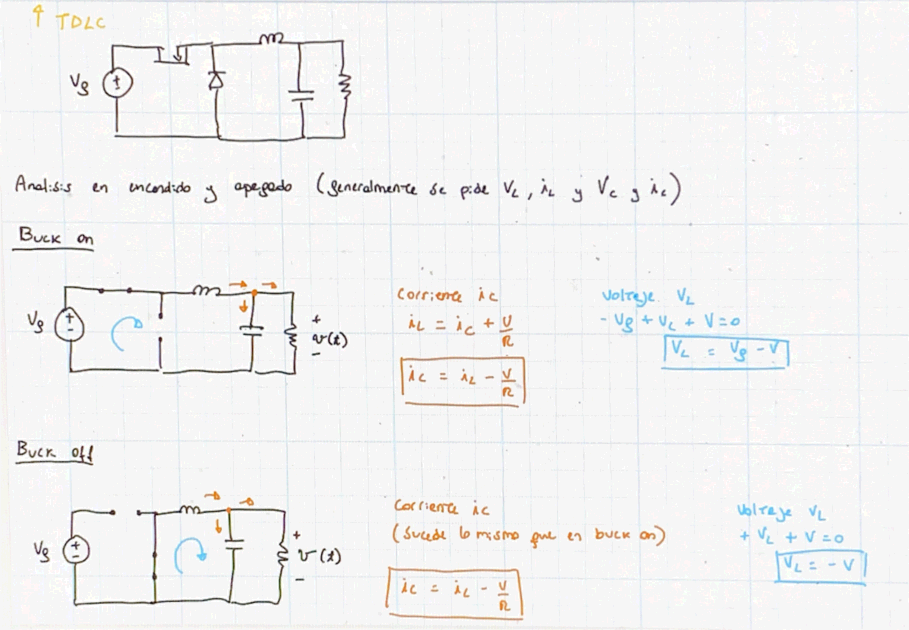 ↑ TDLC
Vg
Analisis en encendido y apegado (generalmente se pide VL, iL y Vc y ic)
Buck on
Vg
+
v(t)
-
Corriente ic
iL = ic + V/R
ic = iL - V/R
Voltaje VL
- Vg + VL + V = 0
VL = Vg - V
Buck off
Vg
+
v(t)
-
Corriente ic
(Sucede lo mismo que en buck on)
ic = iL - V/R
Voltaje VL
+ VL + V = 0
VL = - V